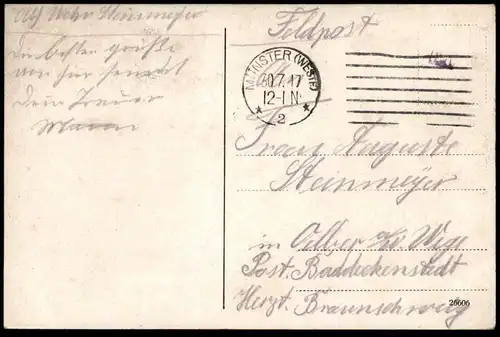 Abs. Wehrm. Steinmeyer
Die besten Grüße
von hier sendet
Dein treuer
Mann
Feldpost
MÜNSTER (WESTF)
30.7.17
12-1 N.
* 2 *
Frau Auguste
Steinmeyer
in Oelber
Post. Baddeckenstedt
Herzt. Braunschweig
26606